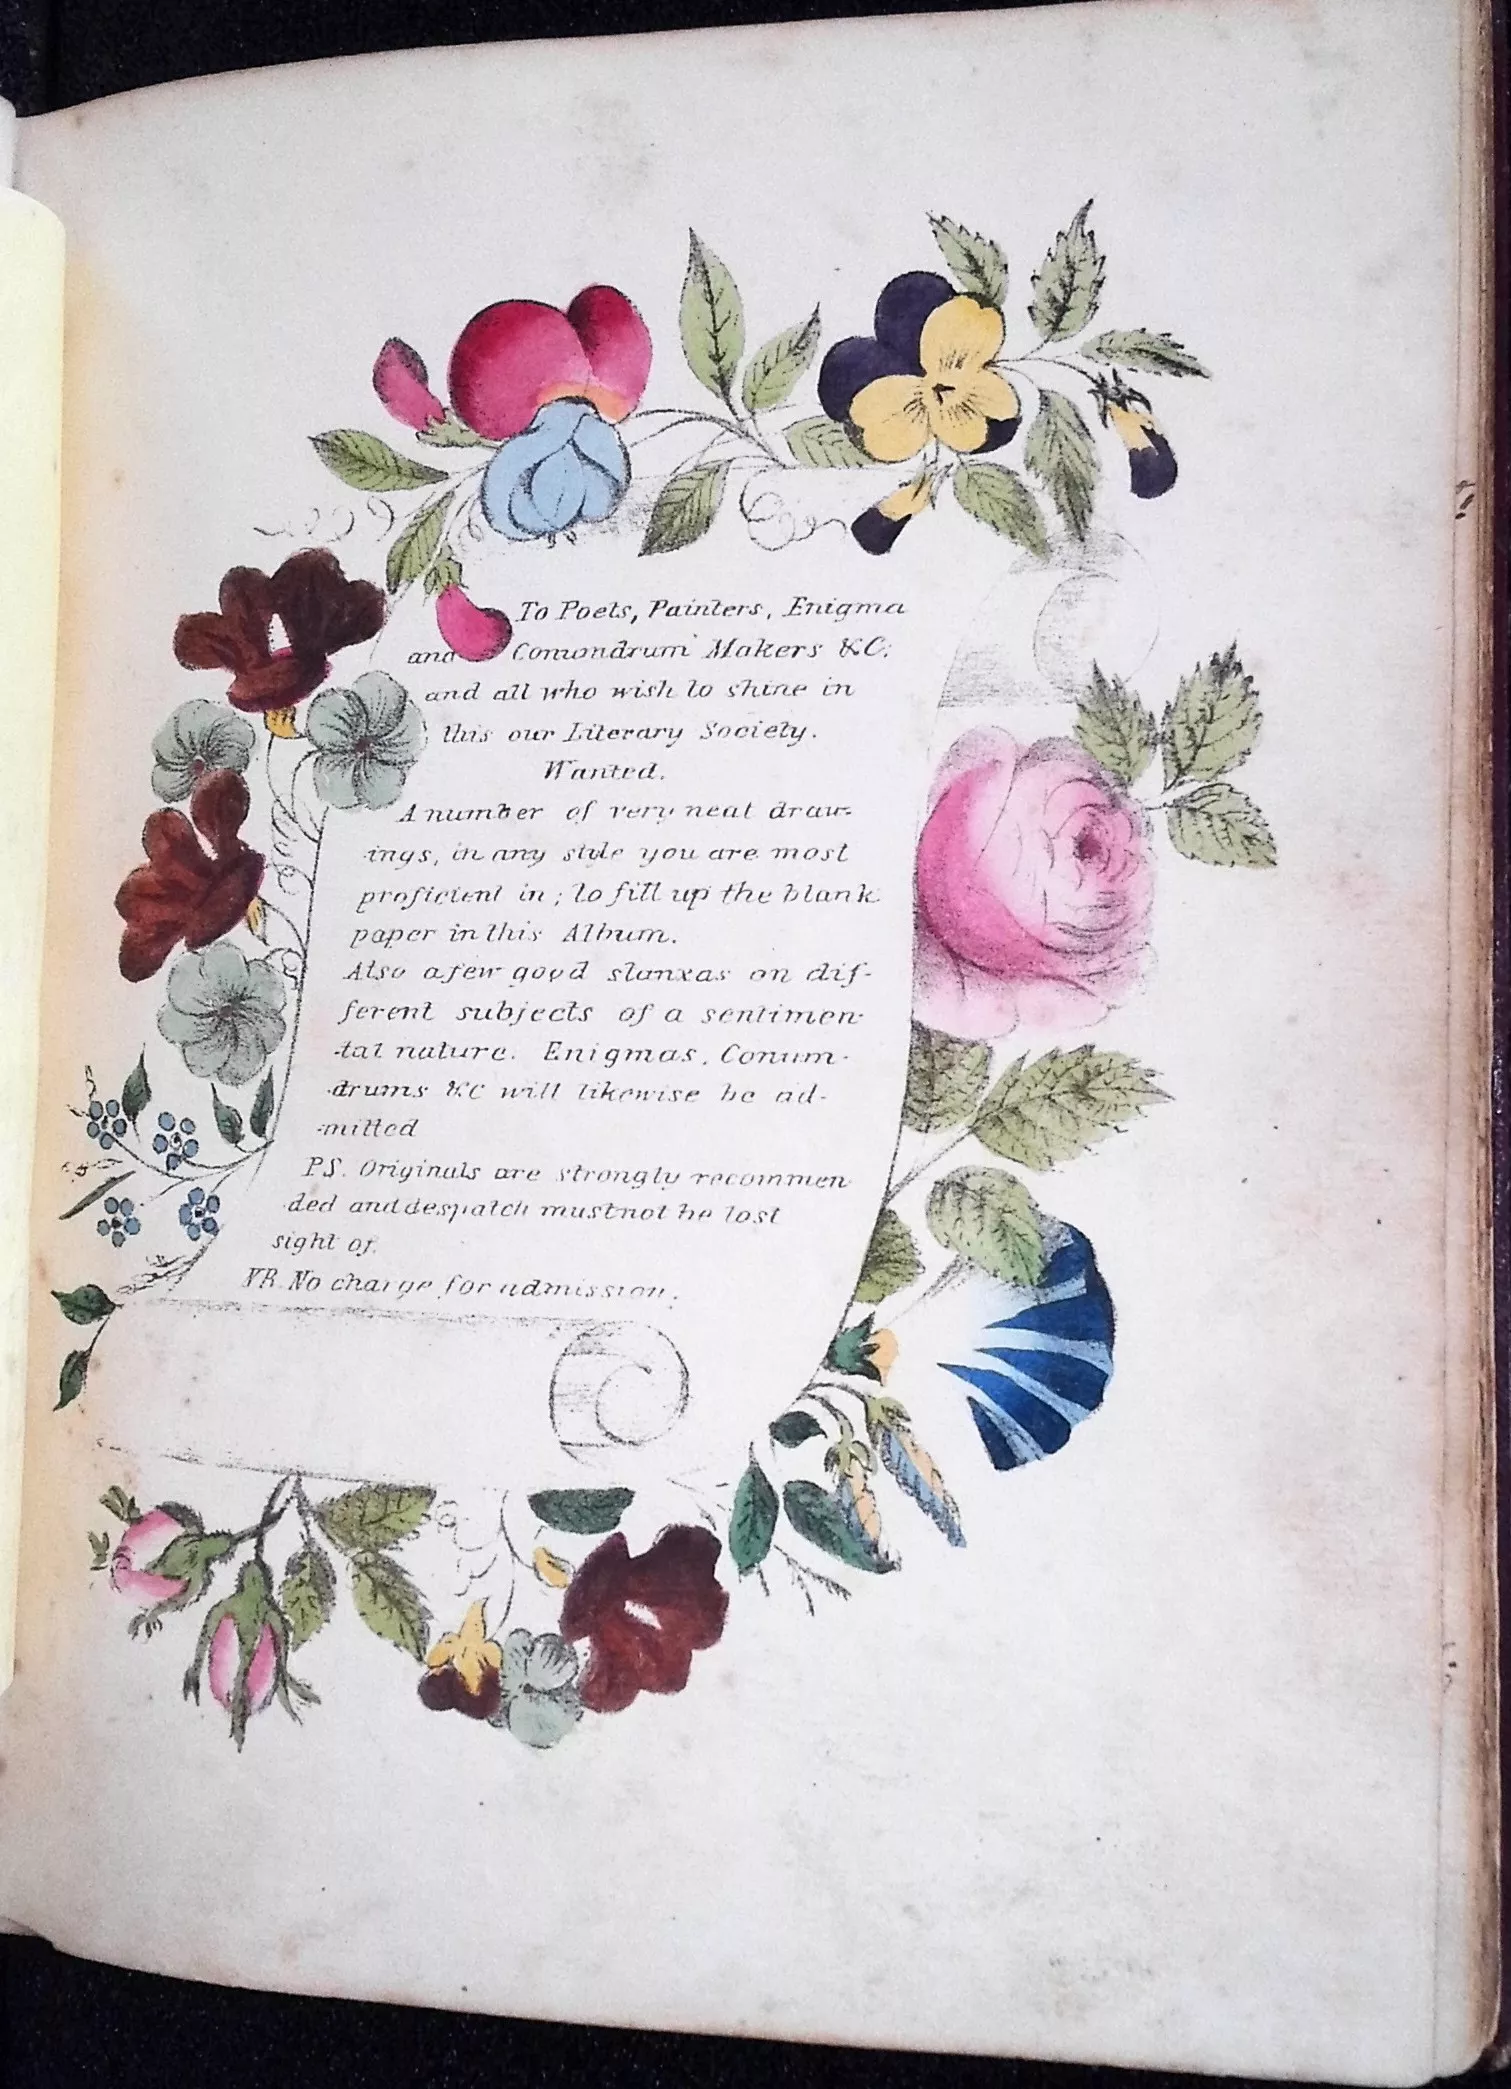 To Poets, Painters, Enigma
and Conundrum Makers &C;
and all who wish to shine in
this our Literary Society.
Wanted.
A number of very neat draw-
-ings, in any style you are most
proficient in; to fill up the blank
paper in this Album.
Also a few good stanzas on dif-
ferent subjects of a sentimen-
-tal nature. Enigmas, Conun-
-drums &C will likewise be ad-
-mitted
P.S. Originals are strongly recommen
-ded and despatch must not be lost
sight of.
NB. No charge for admission.